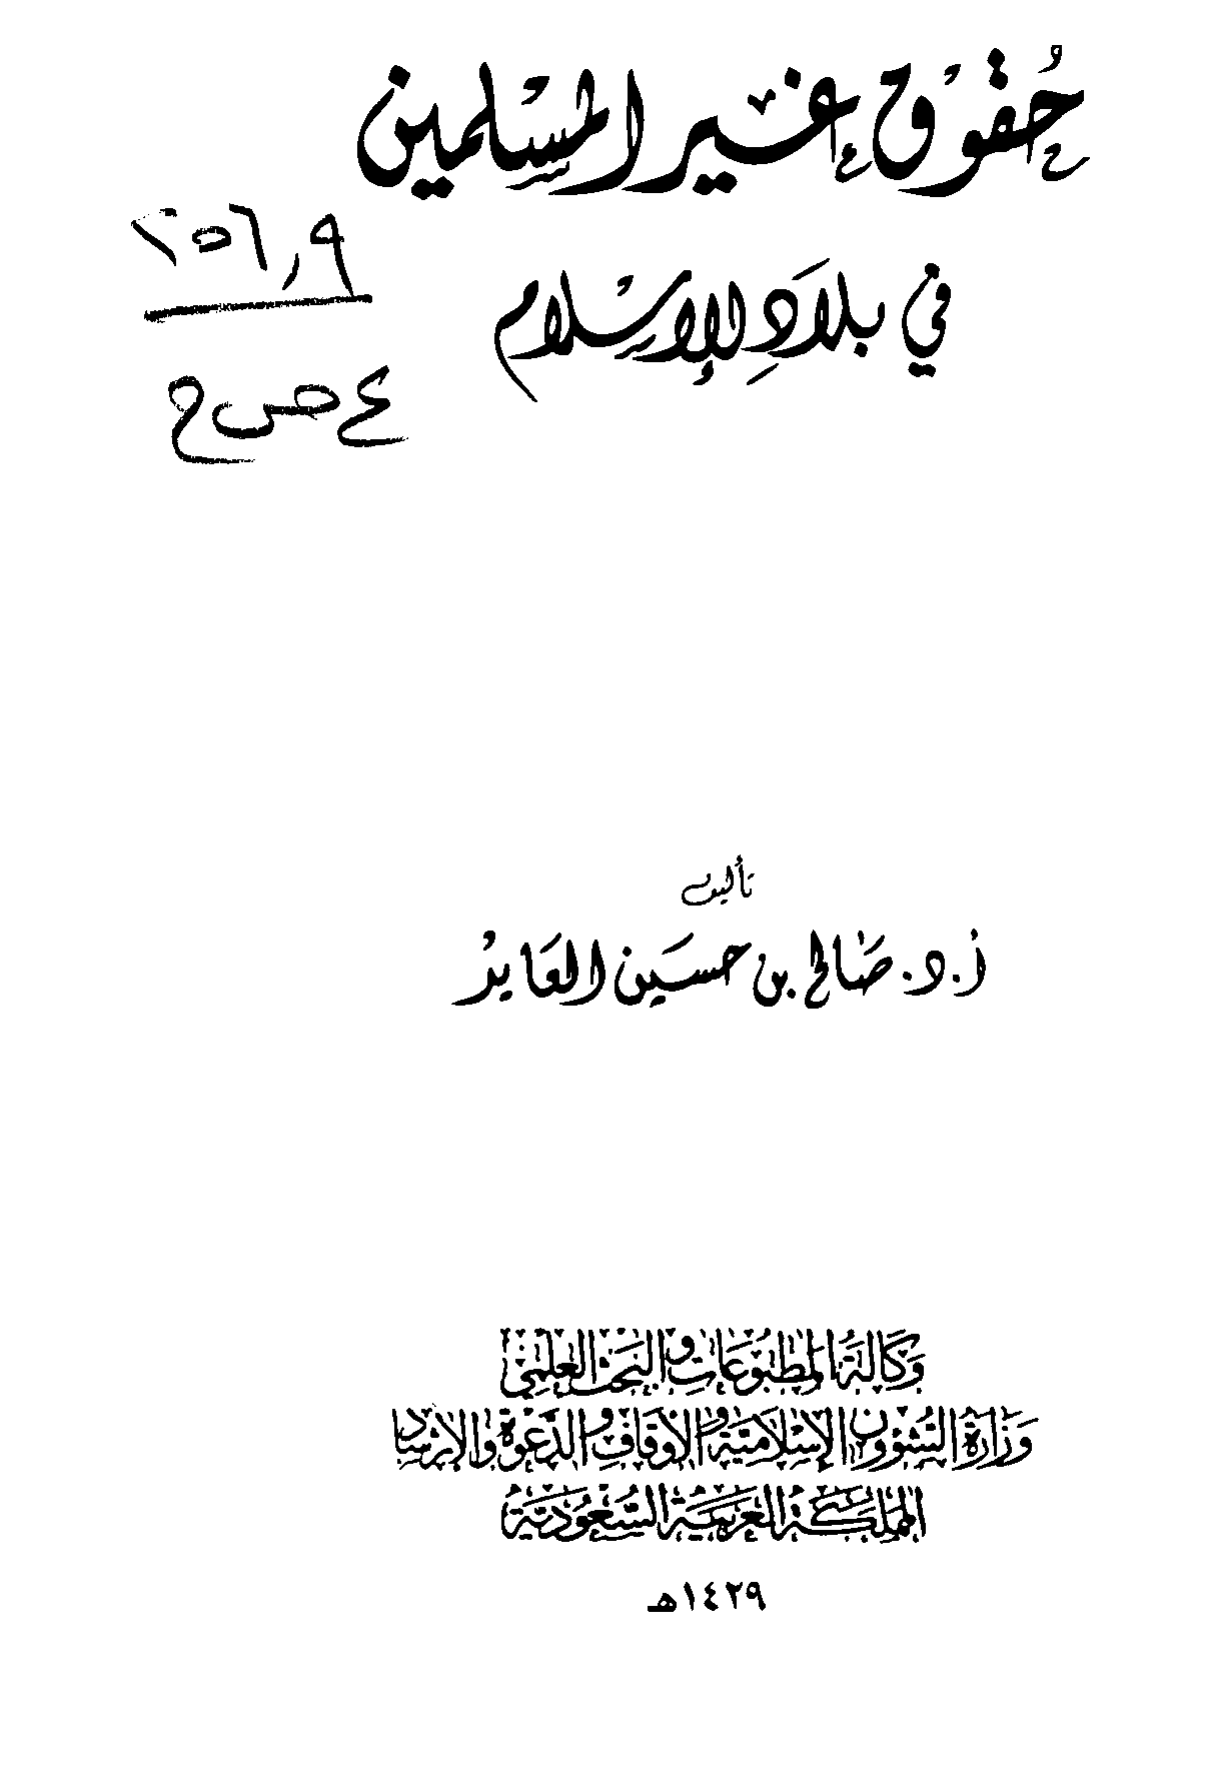 حقوق غير المسلمين
٢٥٦,٩
في بلاد الإسلام
ع ص ح
تأليف
أ.د. صالح بن حسين العايد
وكالة المطبوعات والبحث العلمي
وزارة الشؤون الإسلامية والأوقاف والدعوة والإرشاد
المملكة العربية السعودية
١٤٢٩هـ